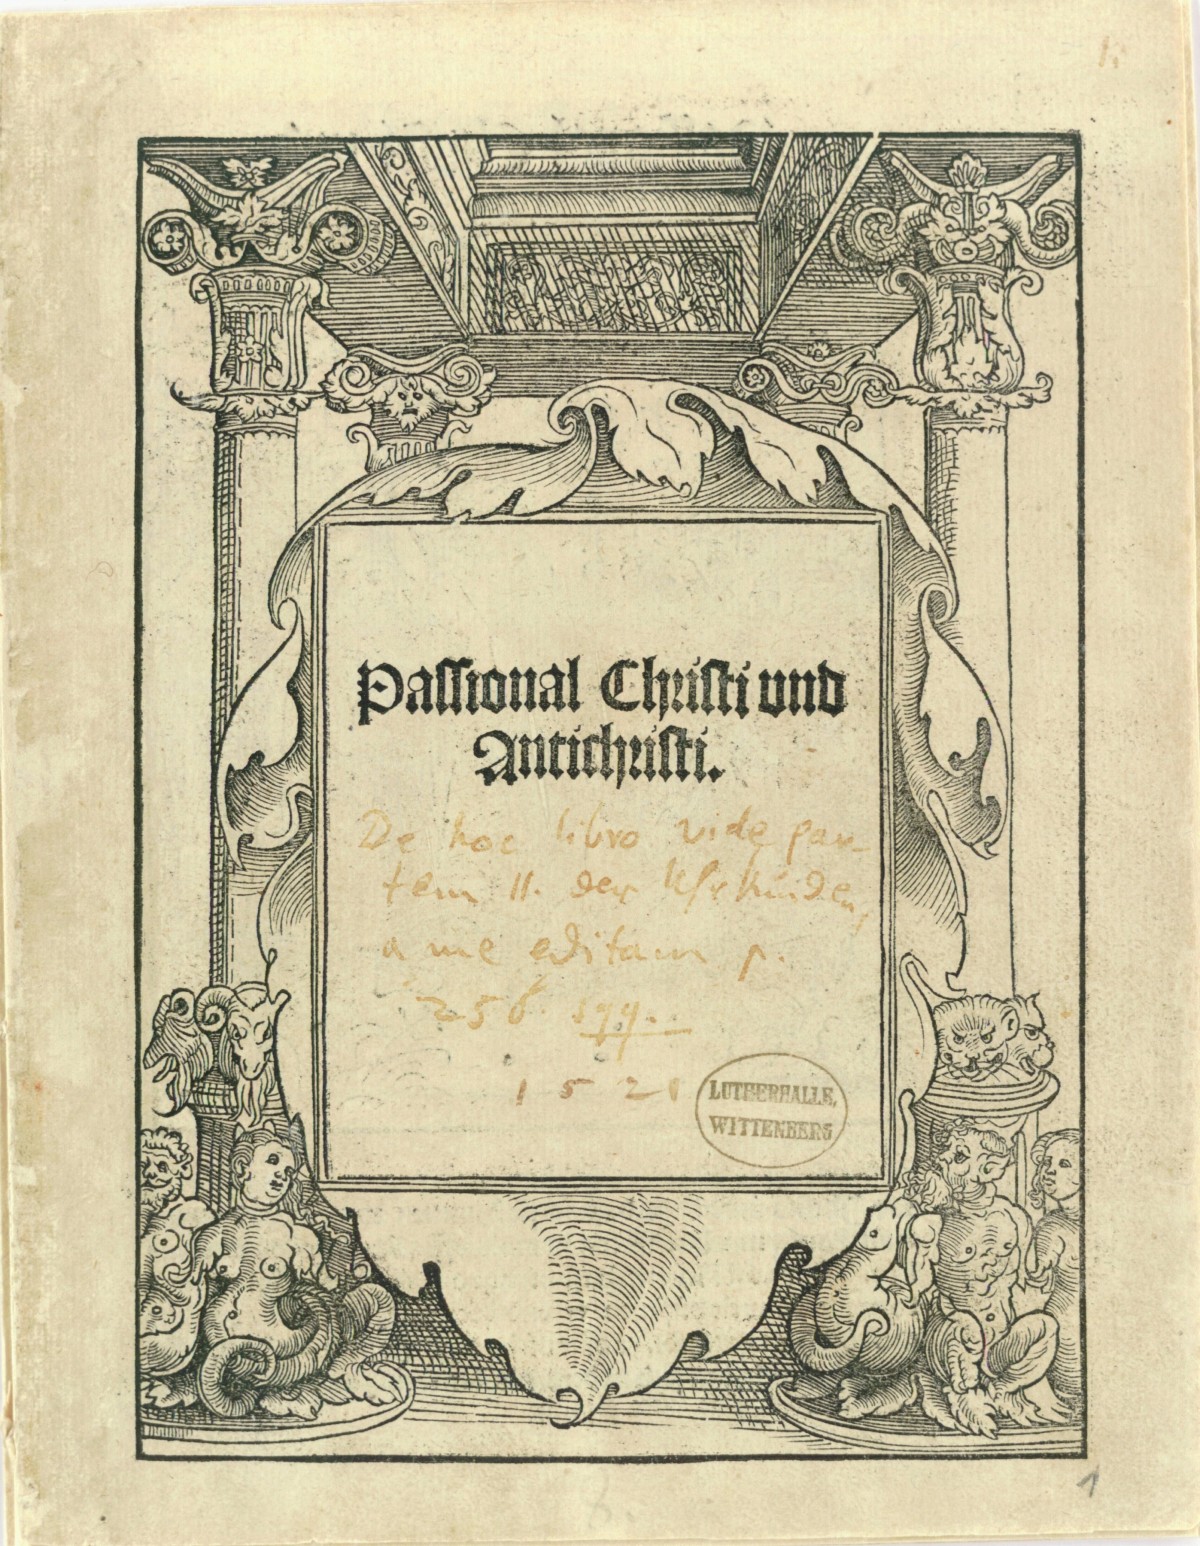 1.
Passional Christi und
Antichristi.
De hoc libro vide par-
tem II. der Uhrkunden,
a me editam p.
256 sqq.
1521
LUTHERHALLE,
WITTENBERG
1